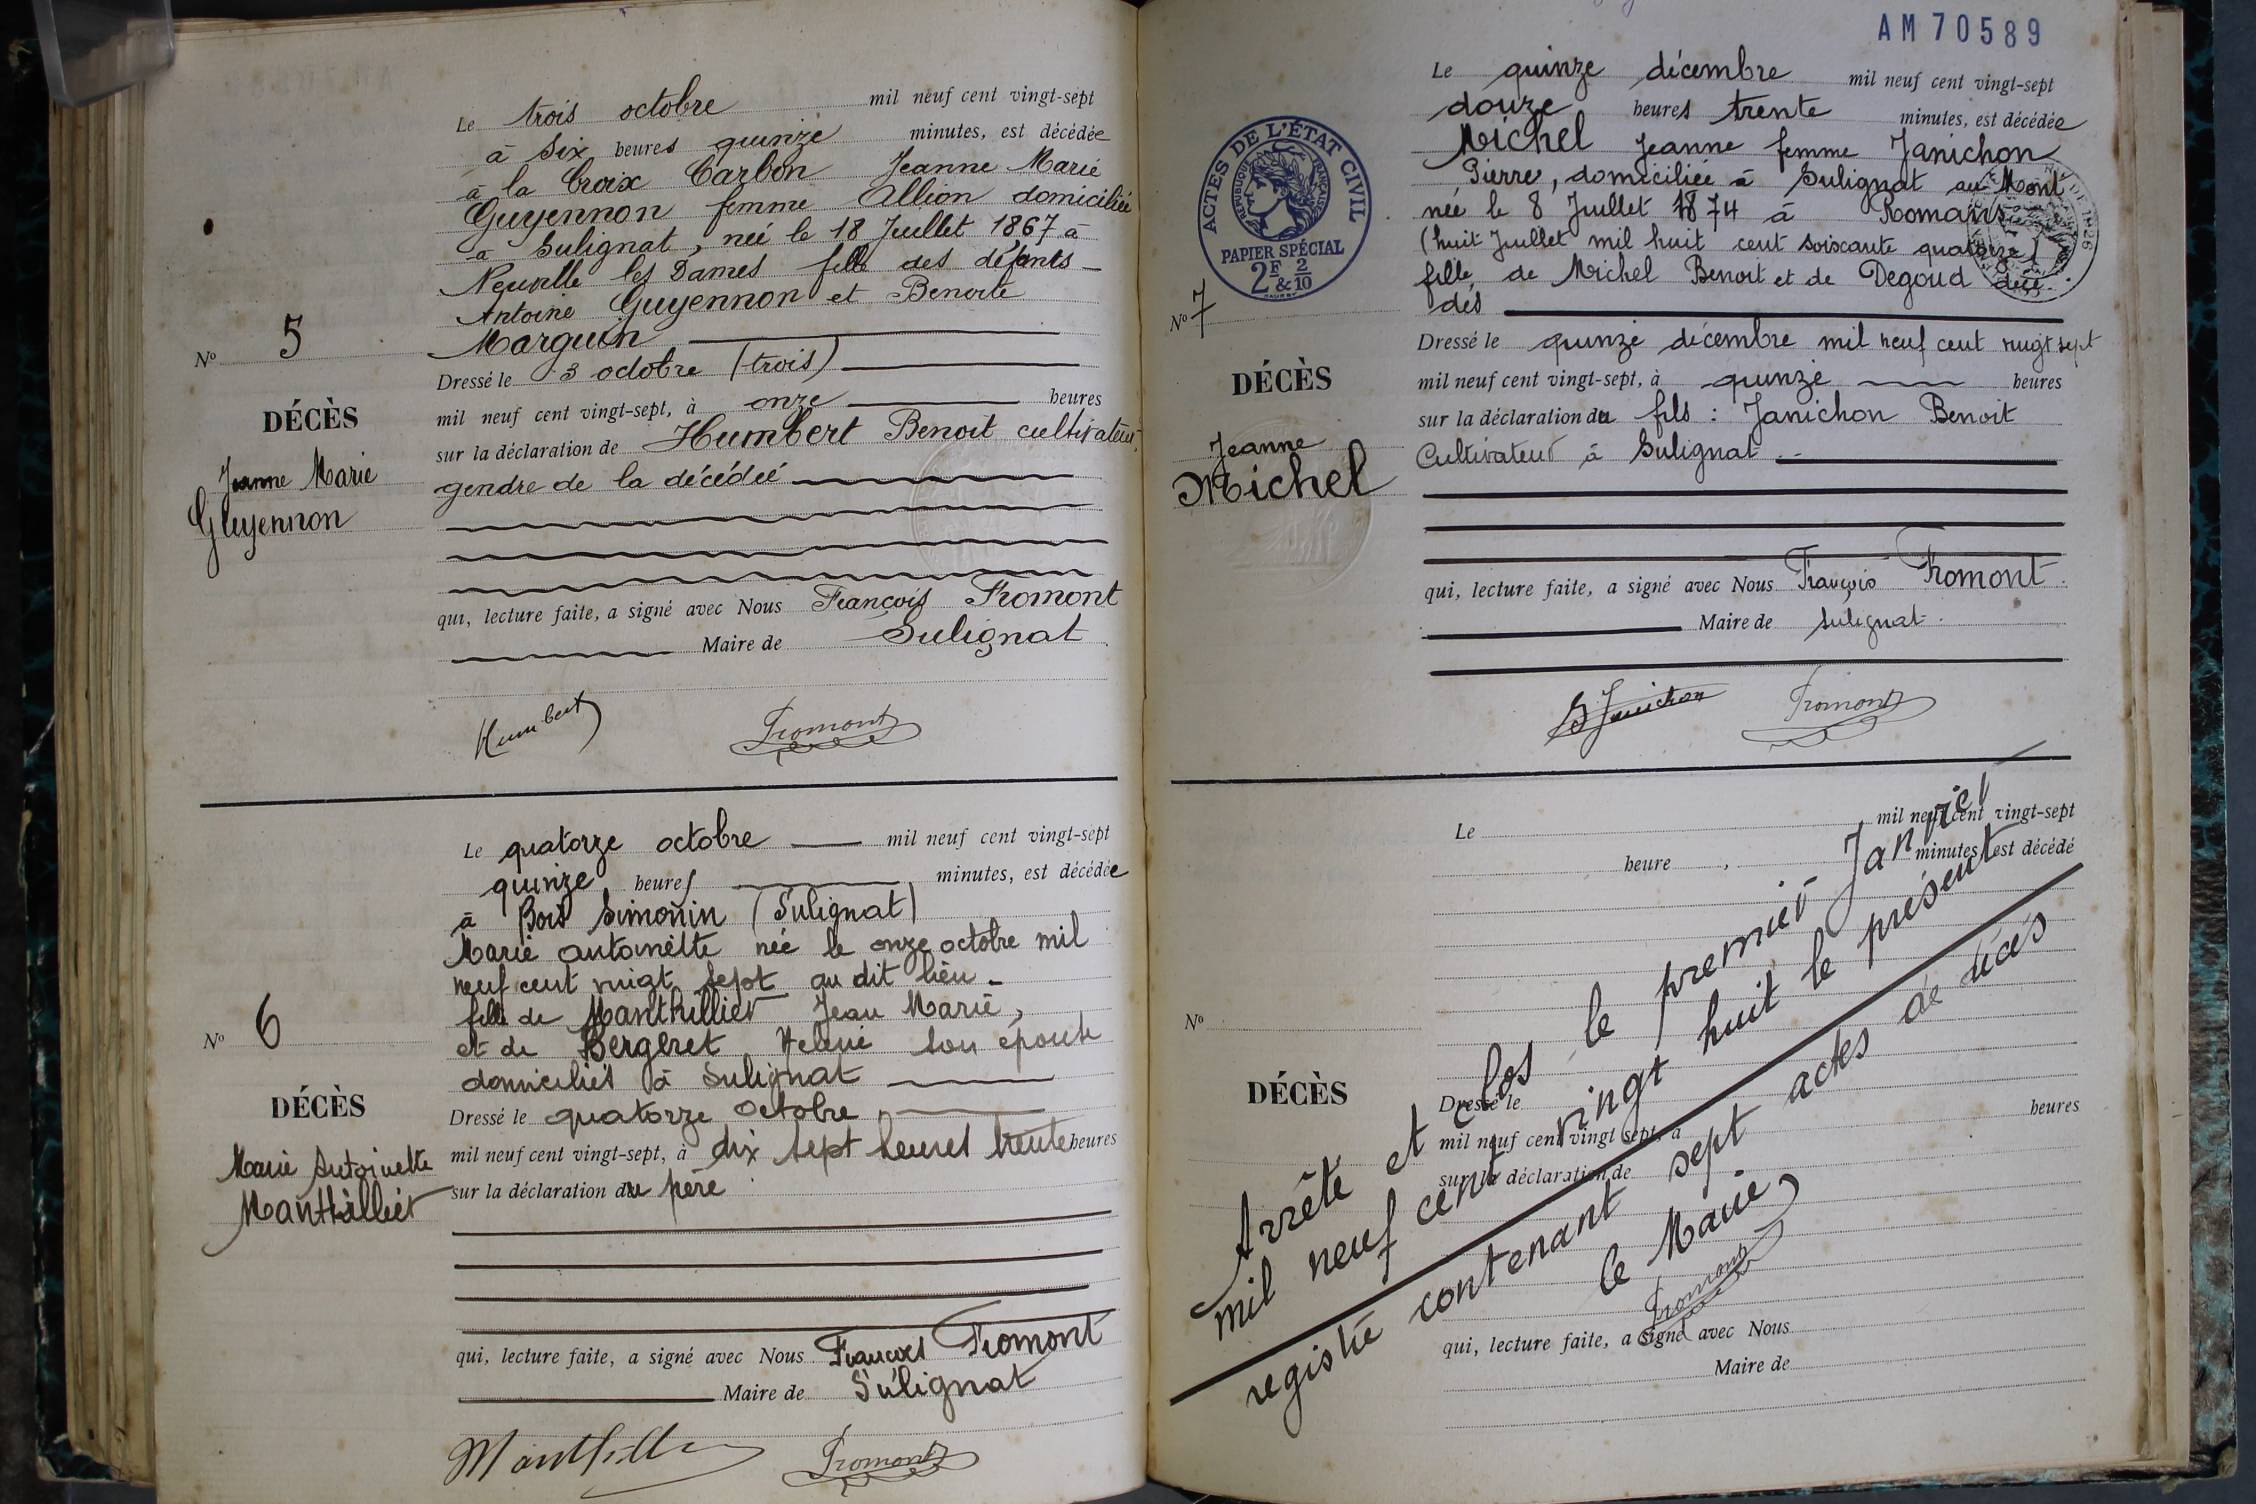 Le trois octobre mil neuf cent vingt-sept
à six heures quinze minutes, est décédée
à la Croix Carbon Jeanne Marie
Guyennon femme Allion domiciliée
à Sulignat, née le 18 Juillet 1867 à
Neuville les Dames fille des défunts
Antoine Guyennon et Benoite
Marguin
No 5
Dressé le 3 octobre (trois)
mil neuf cent vingt-sept, à onze heures
DÉCÈS
sur la déclaration de Humbert Benoit cultivateur,
Jeanne Marie
gendre de la décédée
Guyennon
qui, lecture faite, a signé avec Nous François Fromont
Maire de Sulignat
Humbert Fromont
Le quatorze octobre mil neuf cent vingt-sept
quinze heures minutes, est décédée
à Bois Simonin (Sulignat)
Marie antoinette née le onze octobre mil
neuf cent vingt sept au dit lieu
fille de Manthillier Jean Marie,
No 6
et de Bergeret Hélène son épouse
domiciliés à Sulignat
DÉCÈS
Dressé le quatorze octobre
mil neuf cent vingt-sept, à dix sept heures trente heures
Marie Antoinette
sur la déclaration du père
Manthillier
qui, lecture faite, a signé avec Nous François Fromont
Maire de Sulignat
Fromont
AM 70589
Le quinze décembre mil neuf cent vingt-sept
douze heures trente minutes, est décédée
Michel Jeanne femme Janichon
Pierre, domiciliée à Sulignat au Mont
née le 8 Juillet 1874 à Romans
(huit Juillet mil huit cent soixante quatorze)
fille de Michel Benoit et de Degoud décé
dés
ACTES DE L'ÉTAT CIVIL
REPUBLIQUE FRANÇAISE
PAPIER SPÉCIAL
2F & 2/10
No 7
Dressé le quinze décembre mil neuf cent vingt sept
mil neuf cent vingt-sept, à quinze heures
DÉCÈS
sur la déclaration du fils : Janichon Benoit
Jeanne
Cultivateur à Sulignat
Michel
qui, lecture faite, a signé avec Nous François Fromont
Maire de Sulignat.
B Janichon Fromont
Le mil neuf cent vingt-sept
heure , minutes, est décédé
No
DÉCÈS
Dressé le
mil neuf cent vingt-sept, à heures
sur la déclaration de
qui, lecture faite, a signé avec Nous
Maire de
Arrêté et clos le premier Janvier
mil neuf cent vingt huit le présent
registre contenant sept actes de décès
le Maire
Fromont